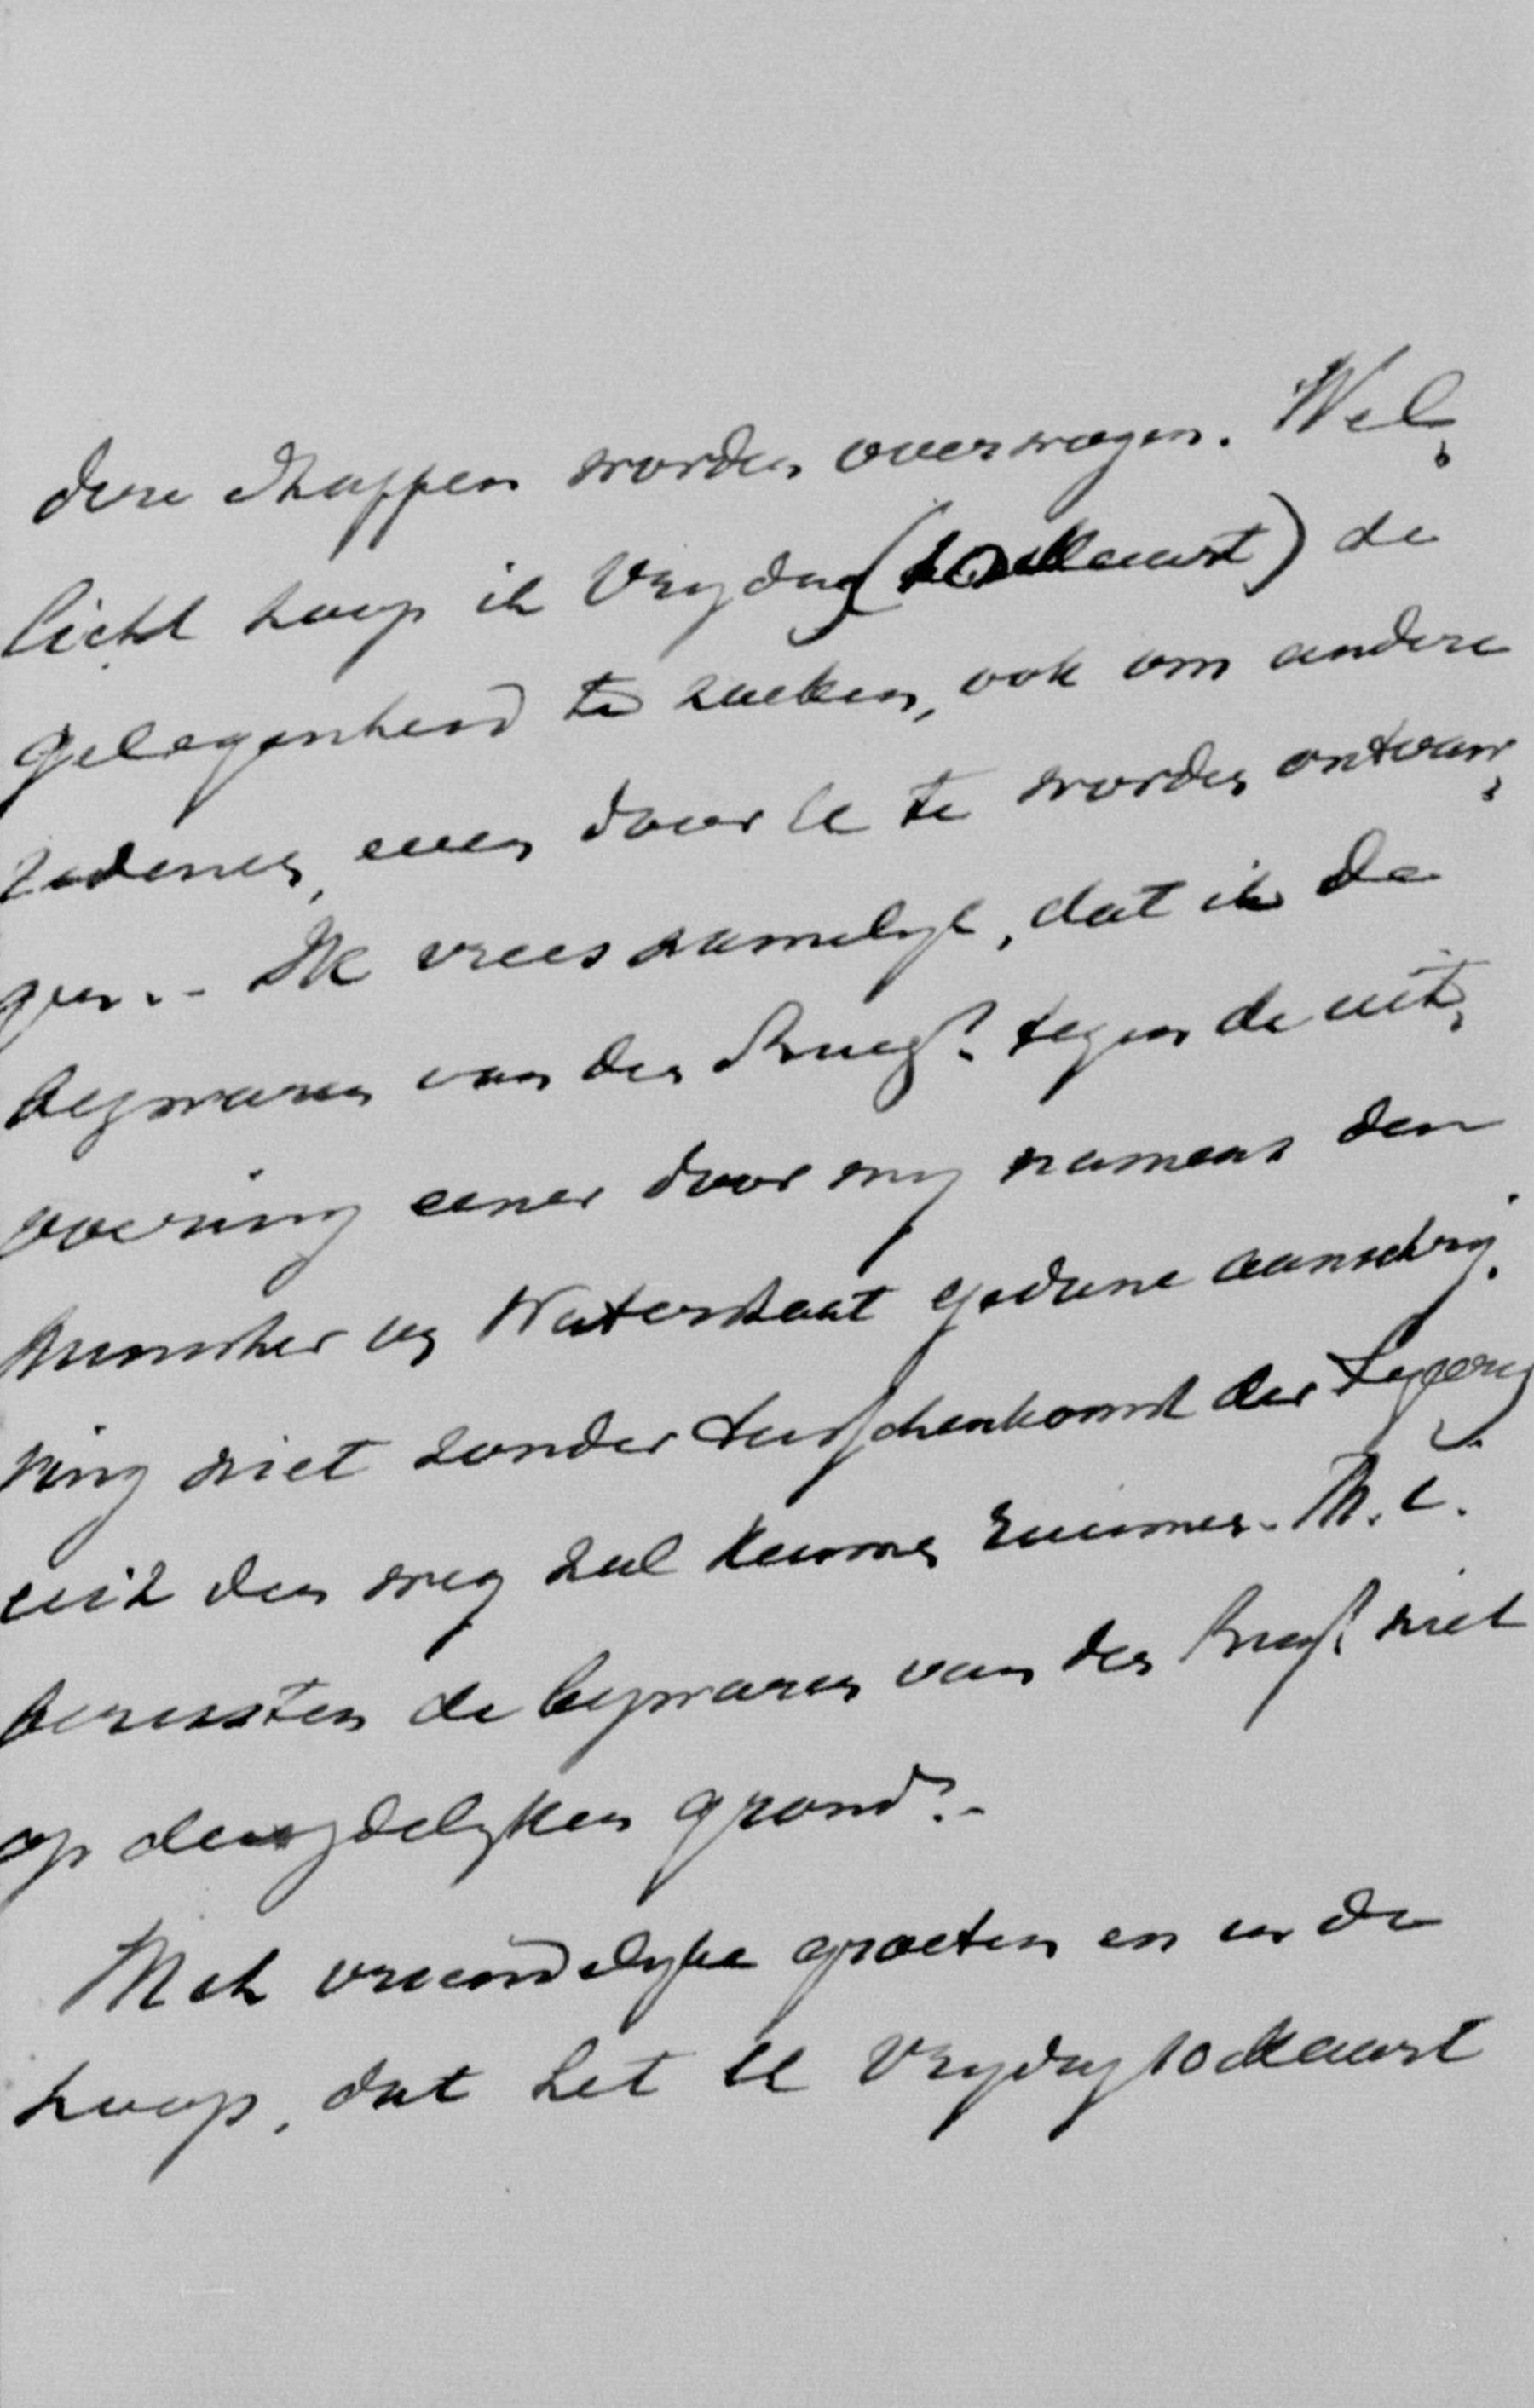 dere stappen worden overwogen. Wel-
licht hoop ik Vrydag (10 Maart) de
gelegenheid te zoeken, ook om andere
redenen, even door U te worden ontvan-
gen. - Ik vrees namelyk, dat ik de
bezwaren van den tegen de uit-
voering eener door my namens den
Minister van Waterstaat gedane aanschry-
ving niet zonder tusschenkomst der Regeering
uit den weg zal kunnen ruimen. M. i.
berusten de bezwaren van den niet
op deugdelyken grond. -
Met vriendelyke groeten en in de
hoop, dat het U Vrydag 10 Maart